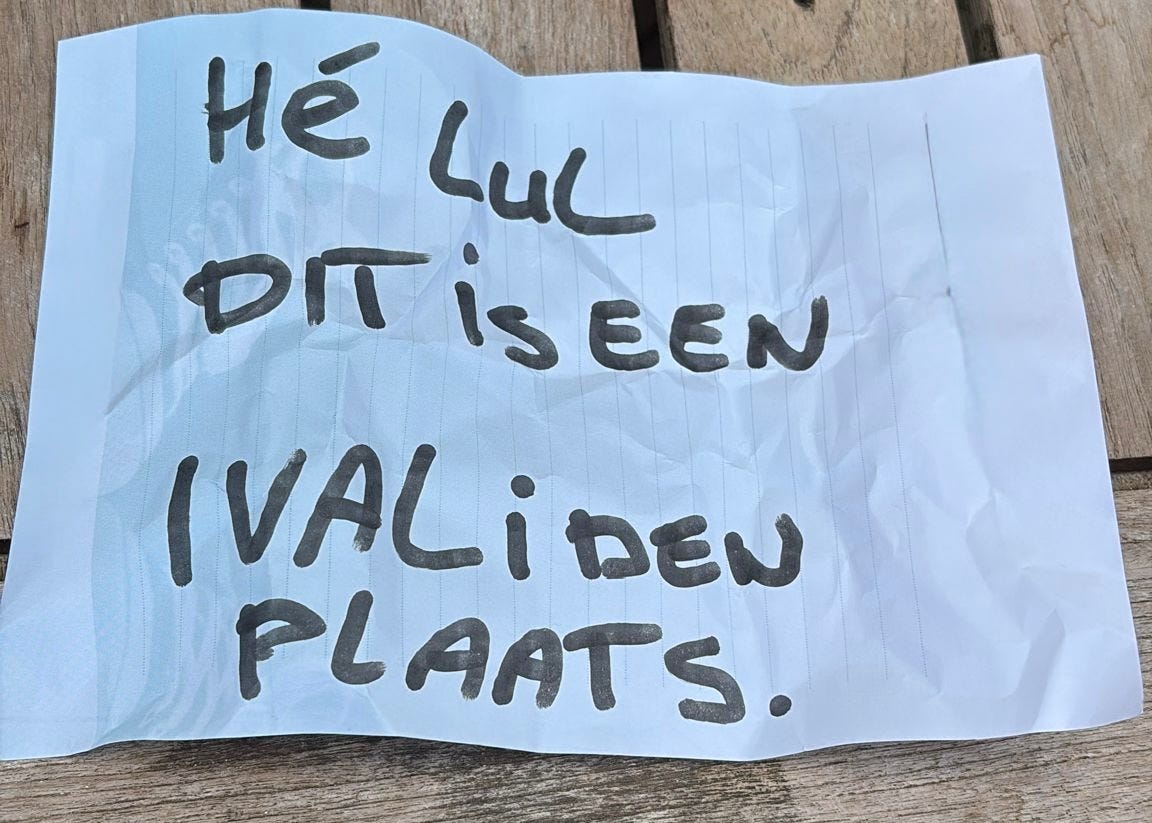 Hé LuL
DIT is EEN
IVALiDEN
PLAATS.